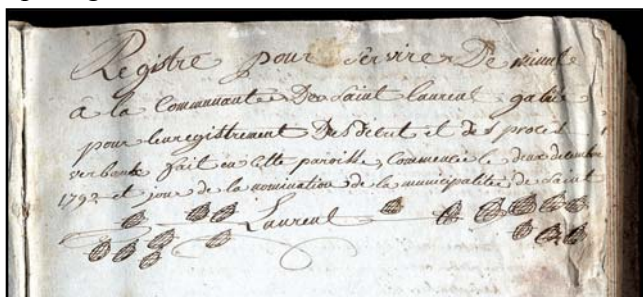 Registre pour servire De minute
a la Communaute De Saint laurent galié
pour lenregistrement Des decret et des proces
verbaux fait en cette paroisse, Commencée le deux decembre
1792 et jour de la nomination de la municipalitée de Saint
Laurent